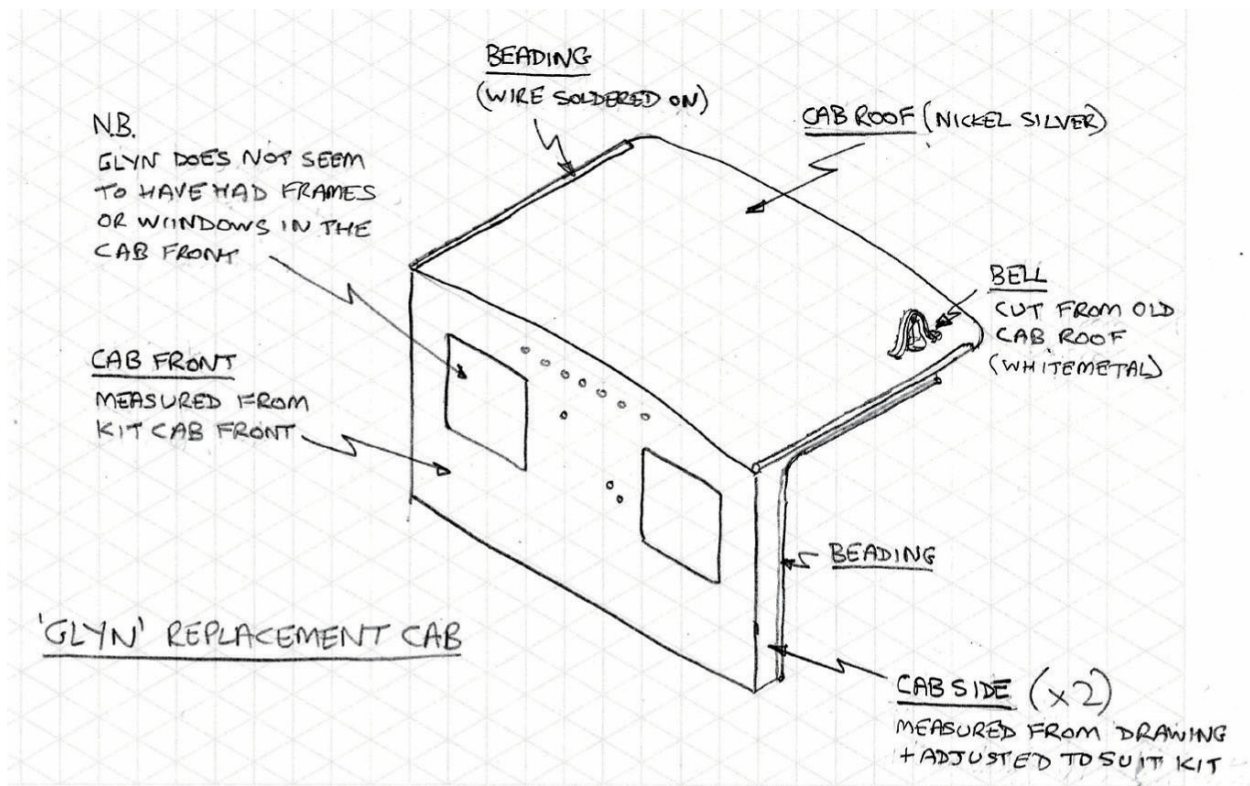 BEADING
(WIRE SOLDERED ON)
CAB ROOF (NICKEL SILVER)
N.B.
GLYN DOES NOT SEEM
TO HAVE HAD FRAMES
OR WINDOWS IN THE
CAB FRONT
BELL
CUT FROM OLD
CAB ROOF
(WHITEMETAL)
CAB FRONT
MEASURED FROM
KIT CAB FRONT
BEADING
'GLYN' REPLACEMENT CAB
CAB SIDE (x2)
MEASURED FROM DRAWING
+ ADJUSTED TO SUIT KIT